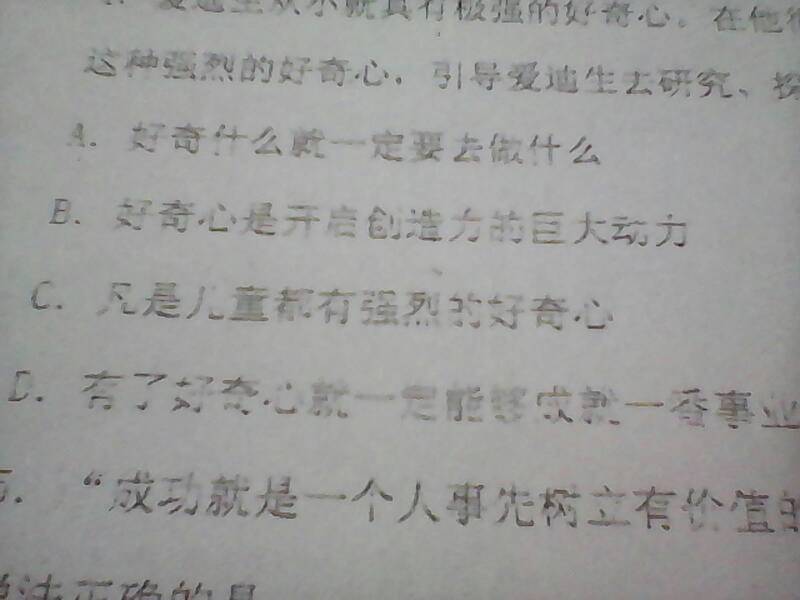 爱迪生从小就具有极强的好奇心。在他
这种强烈的好奇心，引导爱迪生去研究、探
A. 好奇什么就一定要去做什么
B. 好奇心是开启创造力的巨大动力
C. 凡是儿童都有强烈的好奇心
D. 有了好奇心就一定能够成就一番事业
5. “成功就是一个人事先树立有价值的
说法正确的是